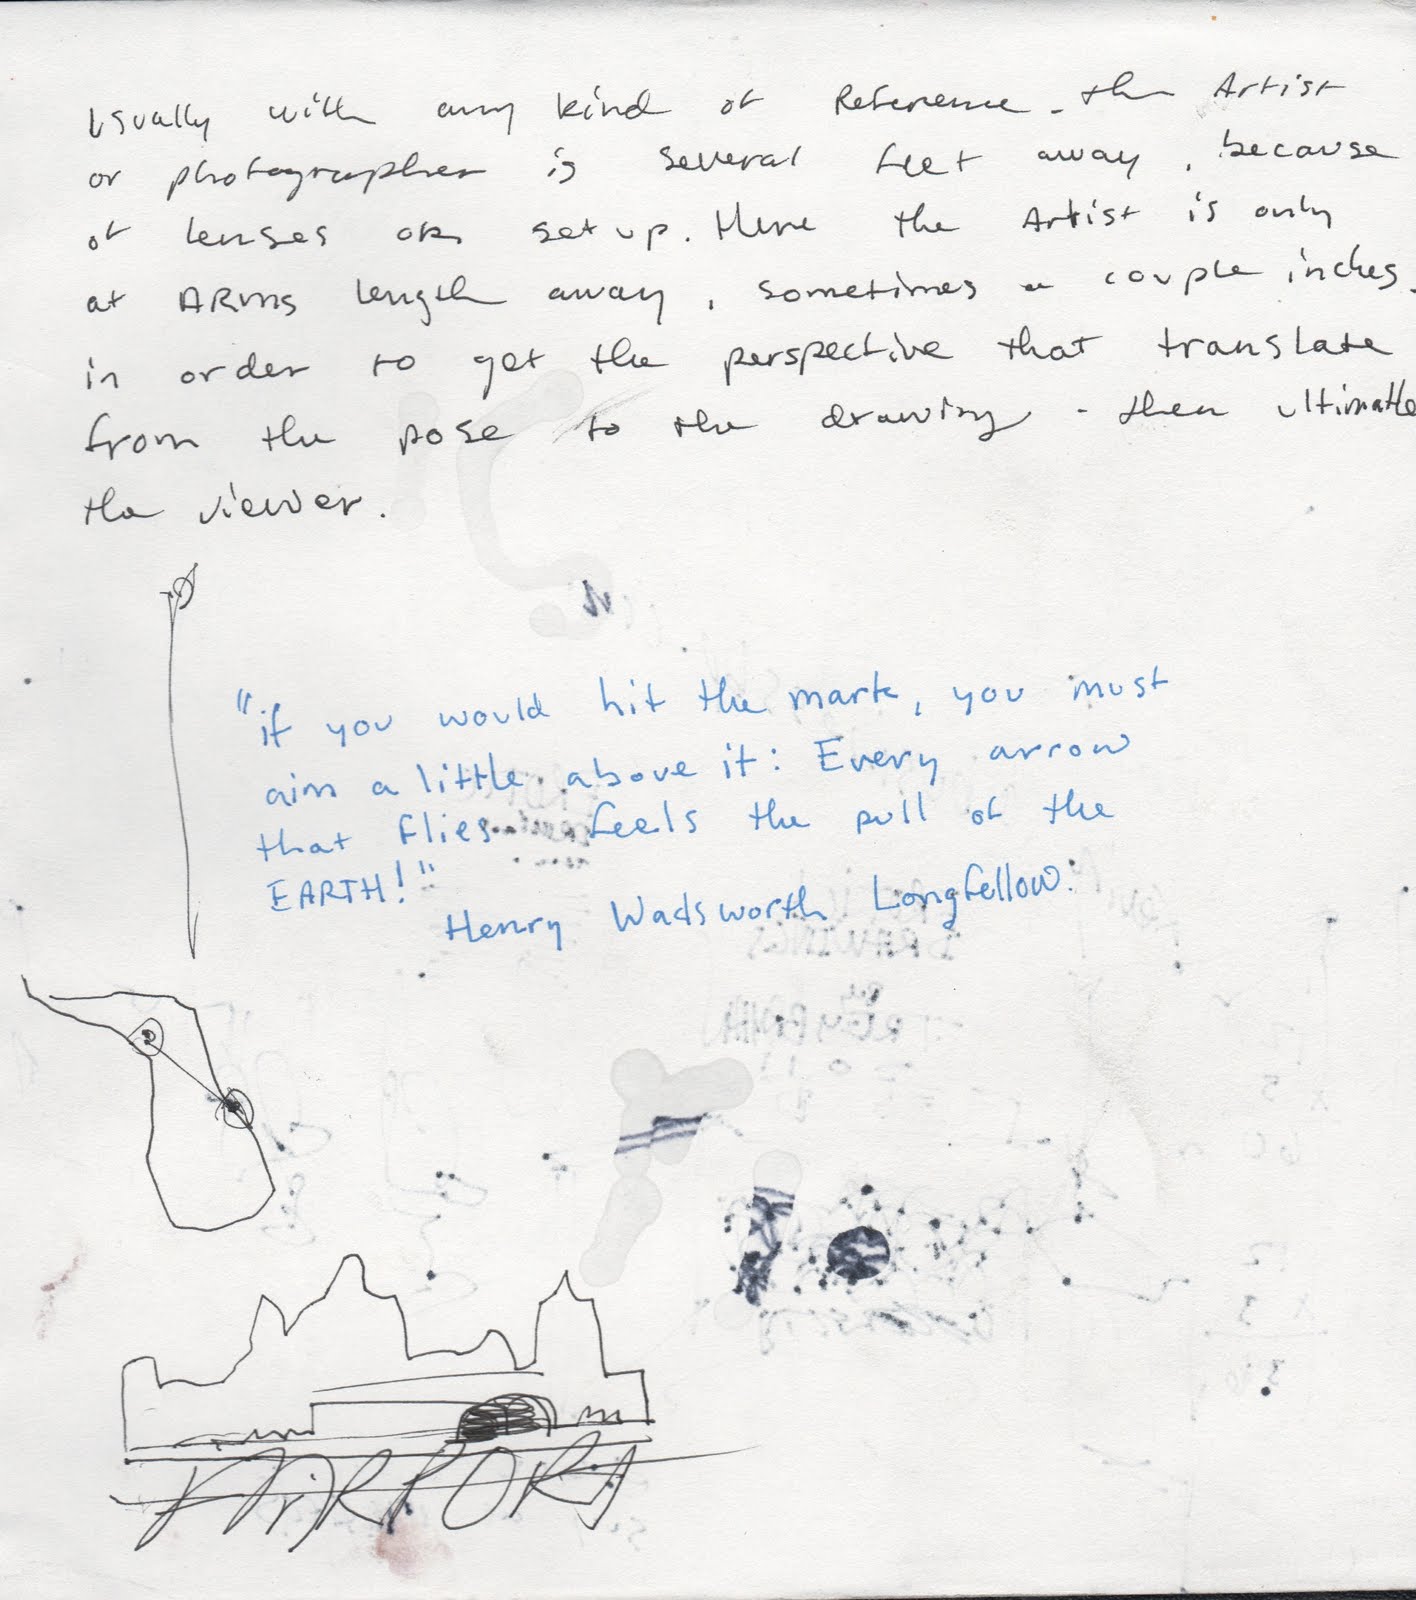 Usually with any kind of Reference - the Artist
or photographer is several feet away, because
of lenses or set up. Here the Artist is only
at ARms length away, sometimes a couple inches.
in order to get the perspective that translate
from the pose to the drawing - then ultimatle
the viewer.
"if you would hit the mark, you must
aim a little above it: Every arrow
that flies feels the pull of the
EARTH!"
Henry Wadsworth Longfellow.
DRAWINGS